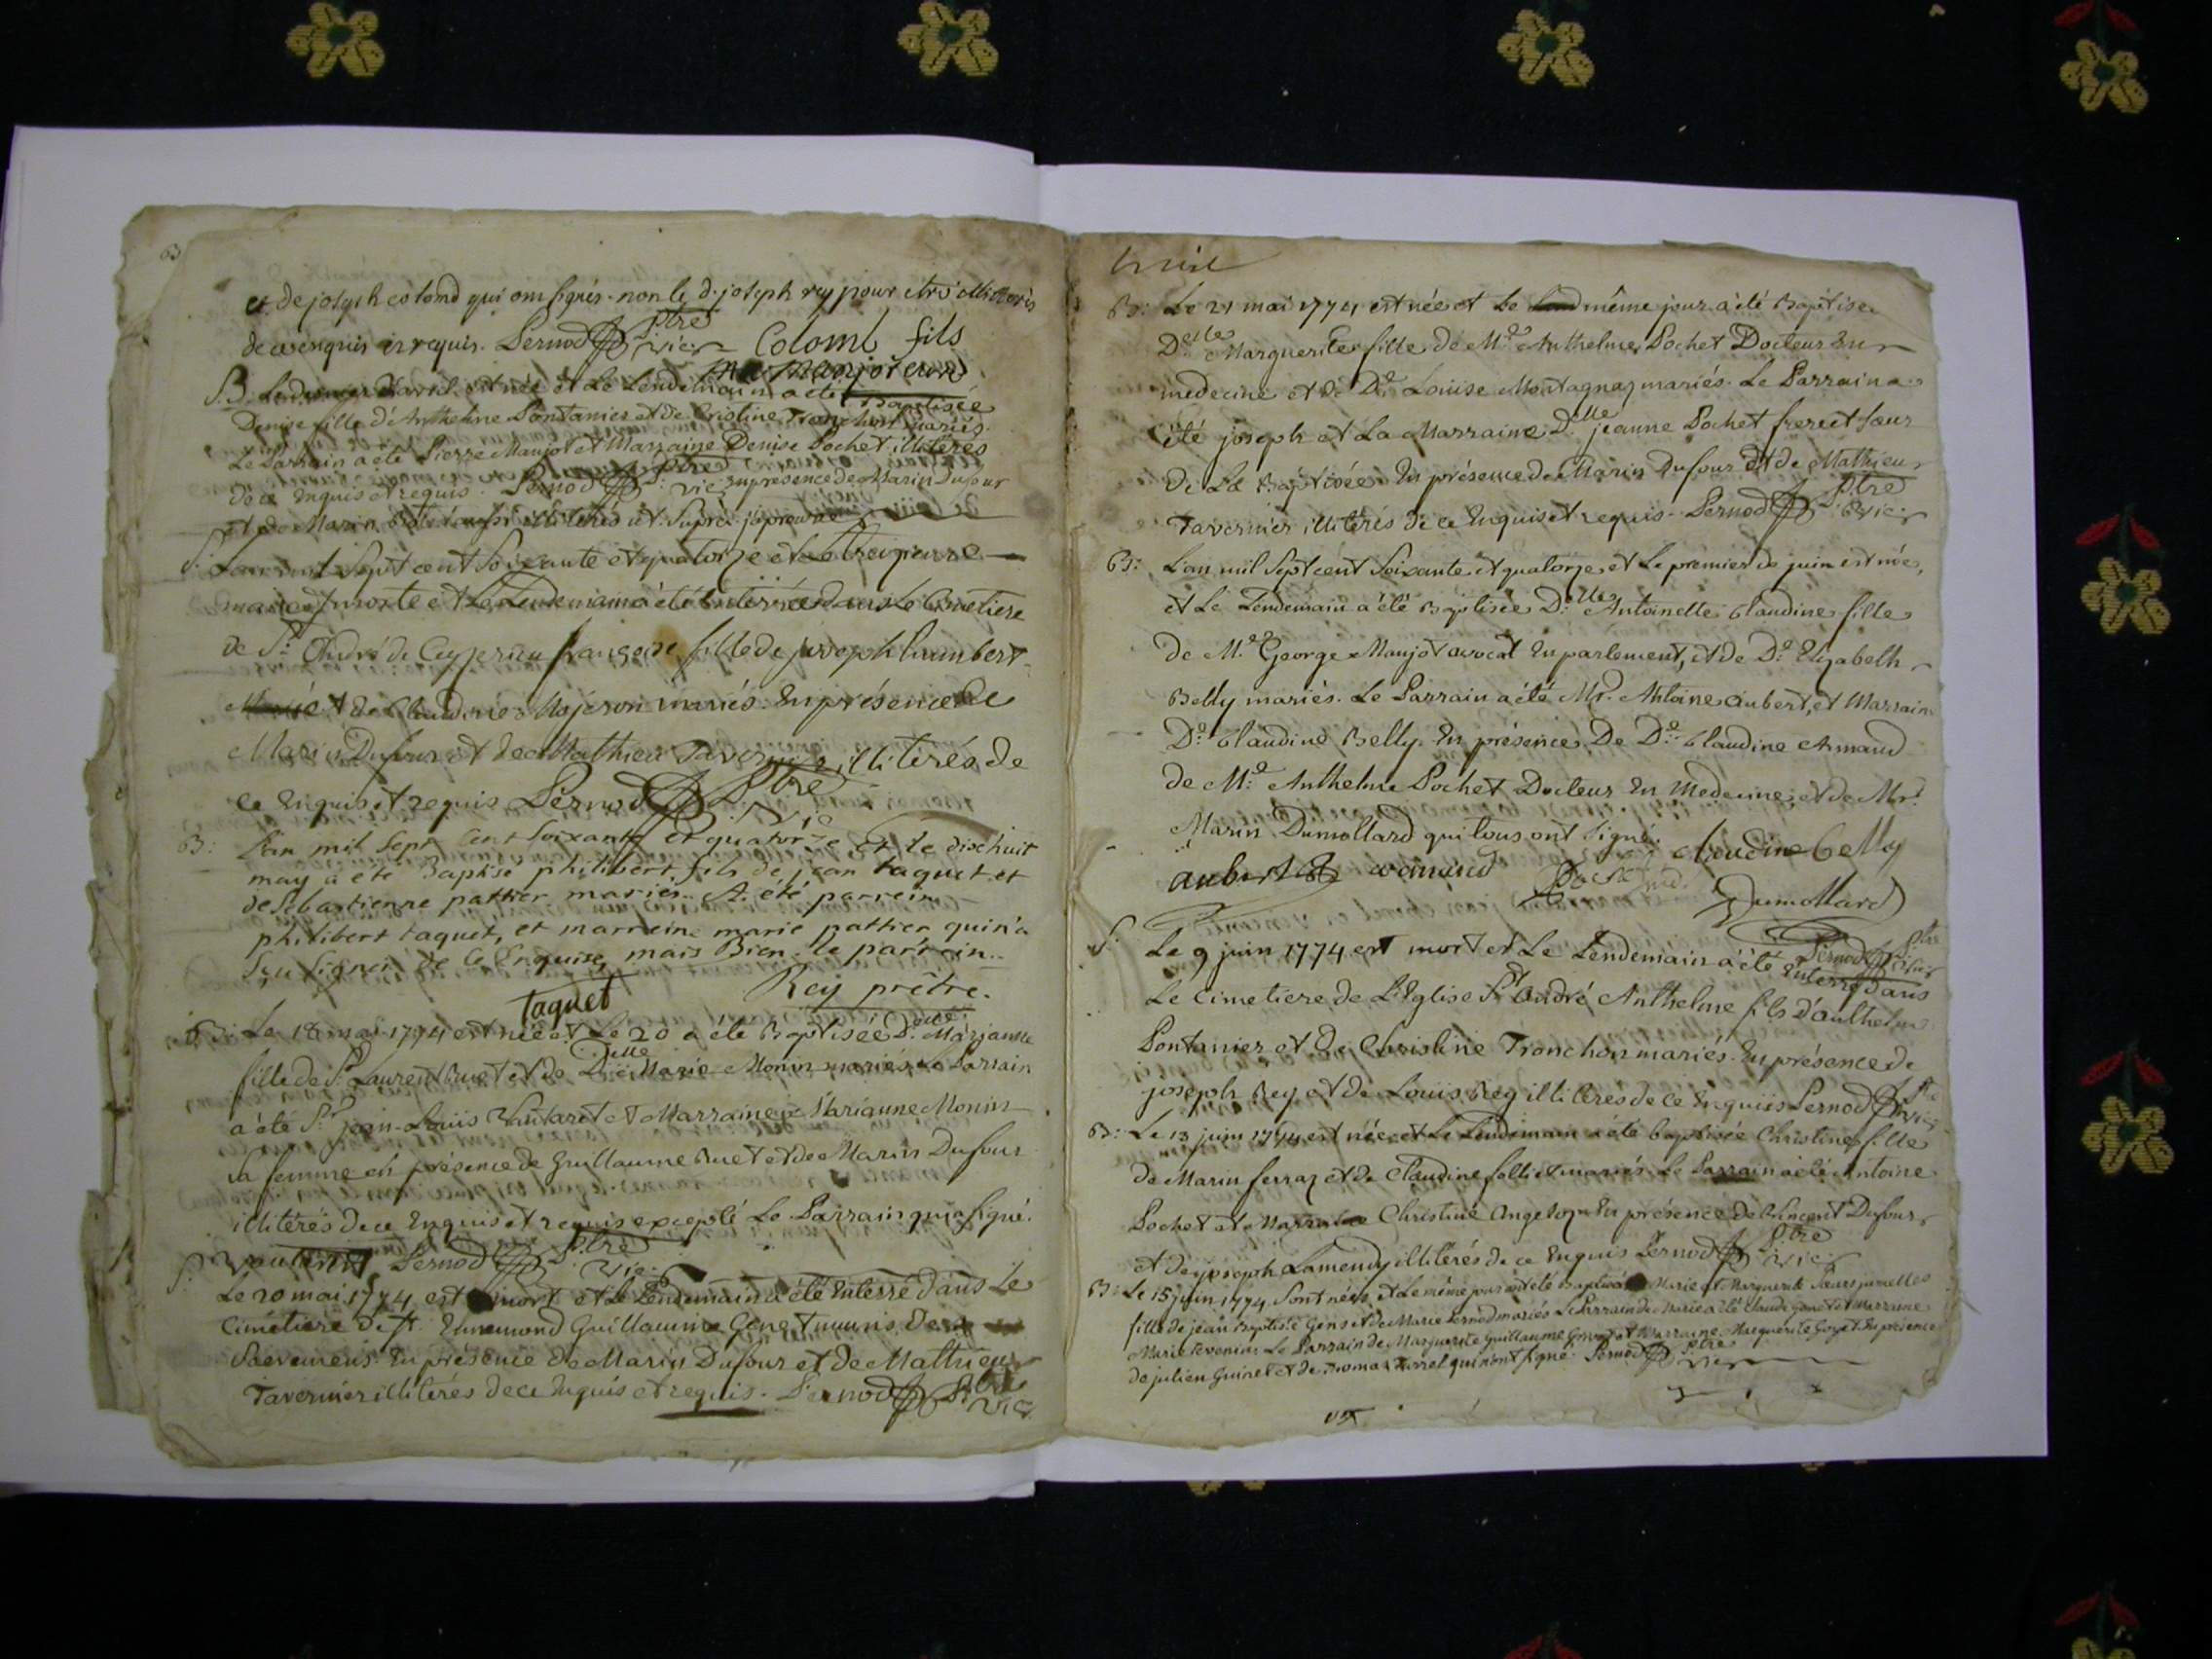 63
et de joseph colomd qui ont signés. non le d. joseph rey pour etre illiterés
de ce enquis et requis. Pernod ptre vic: Colomb fils
B. Le dernier d'avril est née et Le Lendemain a été Baptisée
Denise fille d'Anthelme Pontanier et de Cristine Tronchon mariés.
Le Parrain a été Pierre Maujot et Marraine Denise Pochet illitérés
de ce Enquis et requis. Pernod ptre vic en présence de Marin Dufour
et de Marin
S: L'an mil Sept cent Soixante et quatorze et le
morte et Le Lendemain a été Enterrée dans Le Cimetiere
de St. André de Ceyzerieu françoise fille de joseph humbert
et de Claudine Majeron mariés. En présence de
Marin Dufour et de Mathieu Tavernier illitérés de
ce Enquis et requis Pernod Ptre Vic
B: L'an mil sept cent soixante et quatorze et le dixhuit
may a été Baptisé philibert fils de jean taquet et
de sebastienne pattier mariés. A été parrein
philibert taquet, et marreine marie pattier qui n'a
sçu signer de ce Enquise, mais Bien le parrein.
taquet Rey prêtre.
B: Le 18 mai 1774 est née et Le 20 a été Baptisée Delle Marianne
fille de Sr. Laurent Buet et de Delle Marie Monin mariés. Le Parrain
a été Sr. jean-Louis Vautaret et Marraine Marianne Monin
sa femme en présence de Guillaume Buet et de Marin Dufour
illitérés de ce Enquis et requis excepté Le Parrain qui a signé.
Vautaret Pernod Ptre Vic:
S: Le 20 mai 1774 est mort et Le Lendemain a été Enterré dans Le
Cimetiere de St. Ennemond Guillaume Genet munis des
Sacremens. En présence de Marin Dufour et de Mathieu
Tavernier illitérés de ce Enquis et requis. Pernod Ptre Vic
B: Le 21 mai 1774 est née et Le même jour a été Baptisée
Delle Marguerite fille de Me. Anthelme Pochet Docteur En
médecine et de De. Louise Montagnaz mariés. Le Parrain a
été joseph et La Marraine Delle jeanne Pochet frere et sœur
de La Baptisée. En présence de Marin Dufour et de Mathieu
Tavernier illitérés de ce Enquis et requis. Pernod Ptre Vic:
B: L'an mil Sept cent Soixante et quatorze et Le premier de juin est née,
et Le Lendemain a été Baptisée Delle Antoinette Claudine fille
de Me. George Maujot avocat En parlement, et de De. Elizabeth
Belly mariés. Le Parrain a été Mr. Antoine Aubert, et Marraine
De. Claudine Belly. En présence De De. Claudine Armand
de Me. Anthelme Pochet Docteur En Medecine, et de Mr.
Marin Dumollard qui tous ont signé. Claudine belly
aubert armand Pochet med. Dumollard
Pernod Ptre Vic:
S: Le 9 juin 1774 est mort et Le Lendemain a été Enterré dans
Le Cimetiere de L'Eglise St. André Anthelme fils d'Anthelme
Pontanier et de Christine Tronchon mariés. En présence de
joseph Rey et de Louis Rey illitérés de ce Enquis Pernod Ptre Vic:
B: Le 13 juin 1774 est née et Le Lendemain a été baptisée Christine fille
de Marin ferraz et de Claudine folliet mariés. Le Parrain a été Antoine
Pochet et Marraine Christine En présence de Vincent Dufour
et de joseph Lamendy illitérés de ce Enquis Pernod Ptre Vic:
B: Le 15 juin 1774 sont nées et Le même jour ont été Baptisées Marie et Marguerite sœurs jumelles
fille de jean Baptiste Genet et de Marie Pernod mariés. Le Parrain de Marie a été Claude Genet et Marraine
Marie Le Parrain de Marguerite Guillaume et Marraine Marguerite Goyet. En présence
de julien Guinet et de qui n'ont signé. Pernod Ptre Vic: